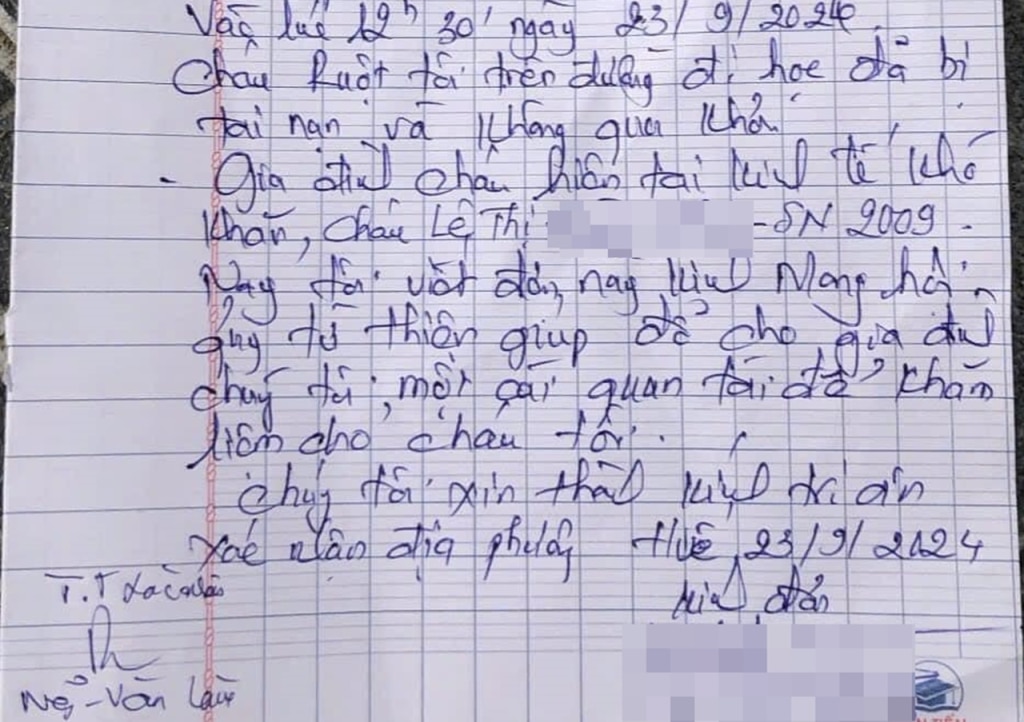 Vào lúc 12h 30' ngày 23/9/2024.
Cháu Ruột tôi trên đường đi học đã bị
tai nạn và không qua khỏi.
- Gia đình cháu hiện tại kinh tế khó
khăn, cháu Lê Thị - SN 2009.
Nay tôi viết đơn này kính Mong hội
từ thiện giúp đỡ cho gia đình
chúng tôi, một cái quan tài để khâm
liệm cho cháu tôi.
Chúng tôi xin thành kính tri ân
Xác nhận địa phương Huế, 23/9/2024
T.T Xác nhận
Kính đơn
Ngô-Văn